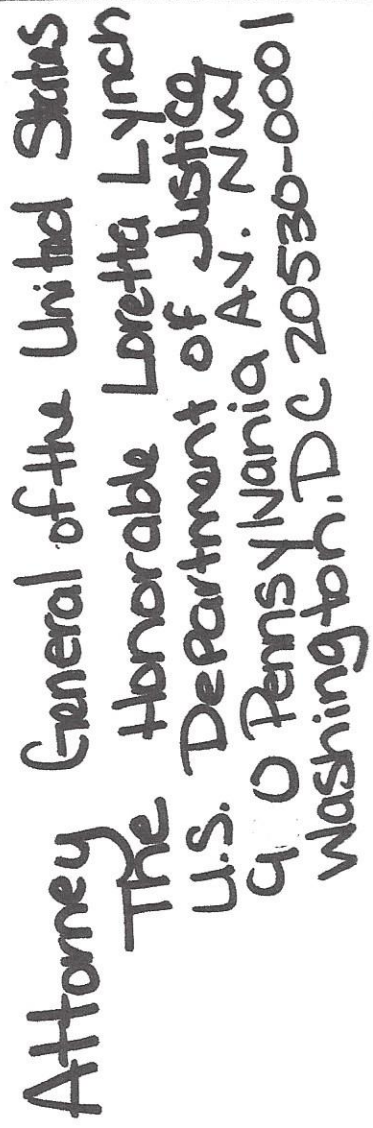 Attorney General of the United States
The Honorable Loretta Lynch
U.S. Department of Justice
9 0 Pennsylvania AV. NW
Washington. DC 20530-0001